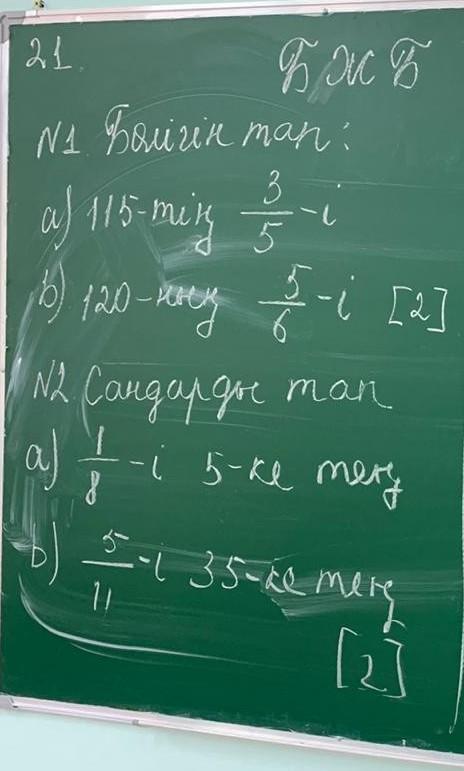 21. БЖБ
№1 Бөлігін тап:
а) 115-тің 3/5-і
b) 120-ның 5/6-і [2]
№2 Сандарды тап
а) 1/8-і 5-ке тең
b) 5/11-і 35-ке тең
[2]